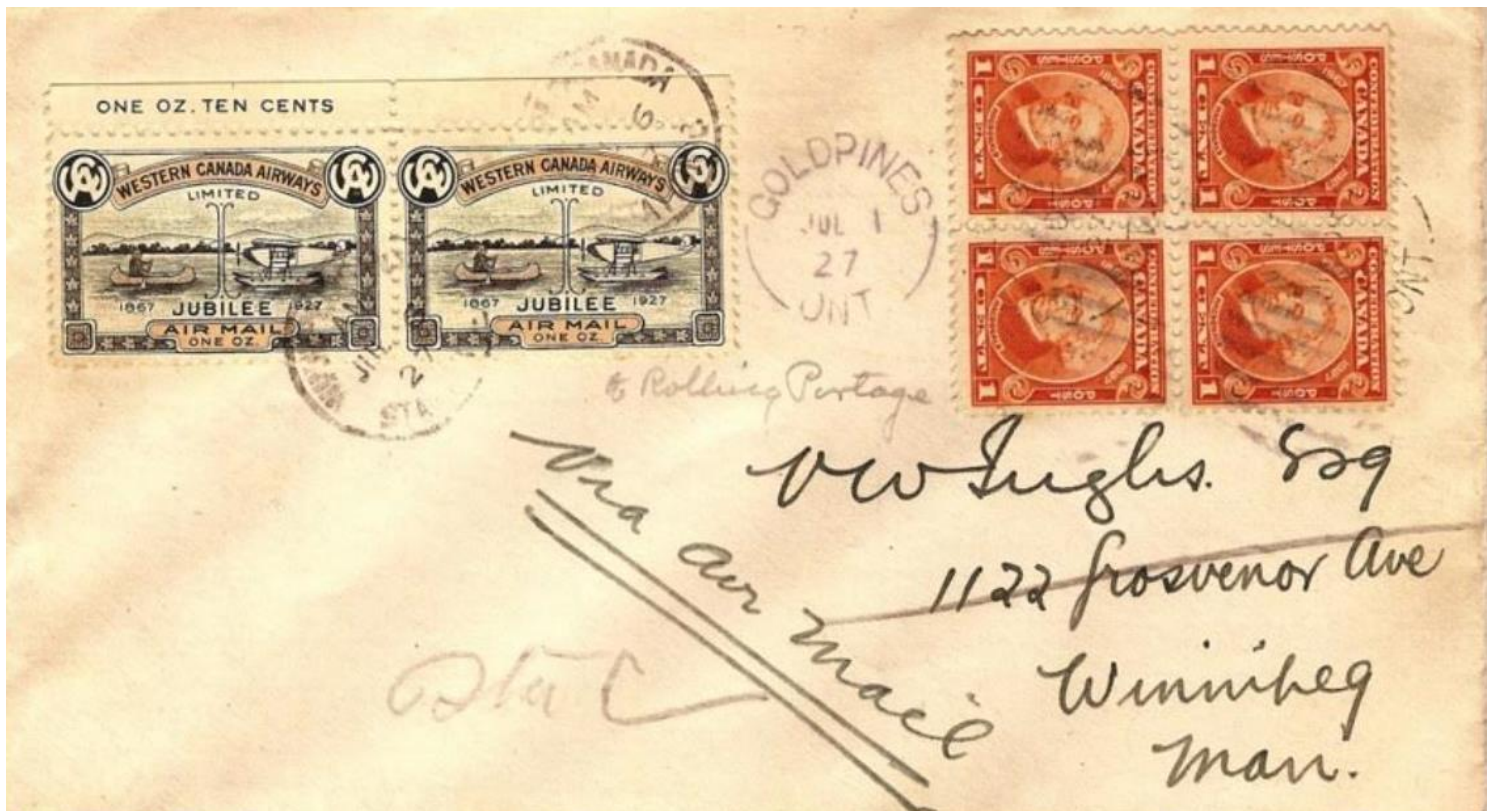 ONE OZ. TEN CENTS
WESTERN CANADA AIRWAYS
LIMITED
1867 JUBILEE 1927
AIR MAIL
ONE OZ.
WESTERN CANADA AIRWAYS
LIMITED
1867 JUBILEE 1927
AIR MAIL
ONE OZ.
CANADA
GOLDPINES
JUL 1
27
ONT
CONFEDERATION
CANADA
1 CENT 1
CONFEDERATION
CANADA
1 CENT 1
CONFEDERATION
CANADA
1 CENT 1
CONFEDERATION
CANADA
1 CENT 1
ONT
Rolling Portage
Via Air Mail
V W Inglis. Esq
1122 Grosvenor Ave
Winnipeg
Man.